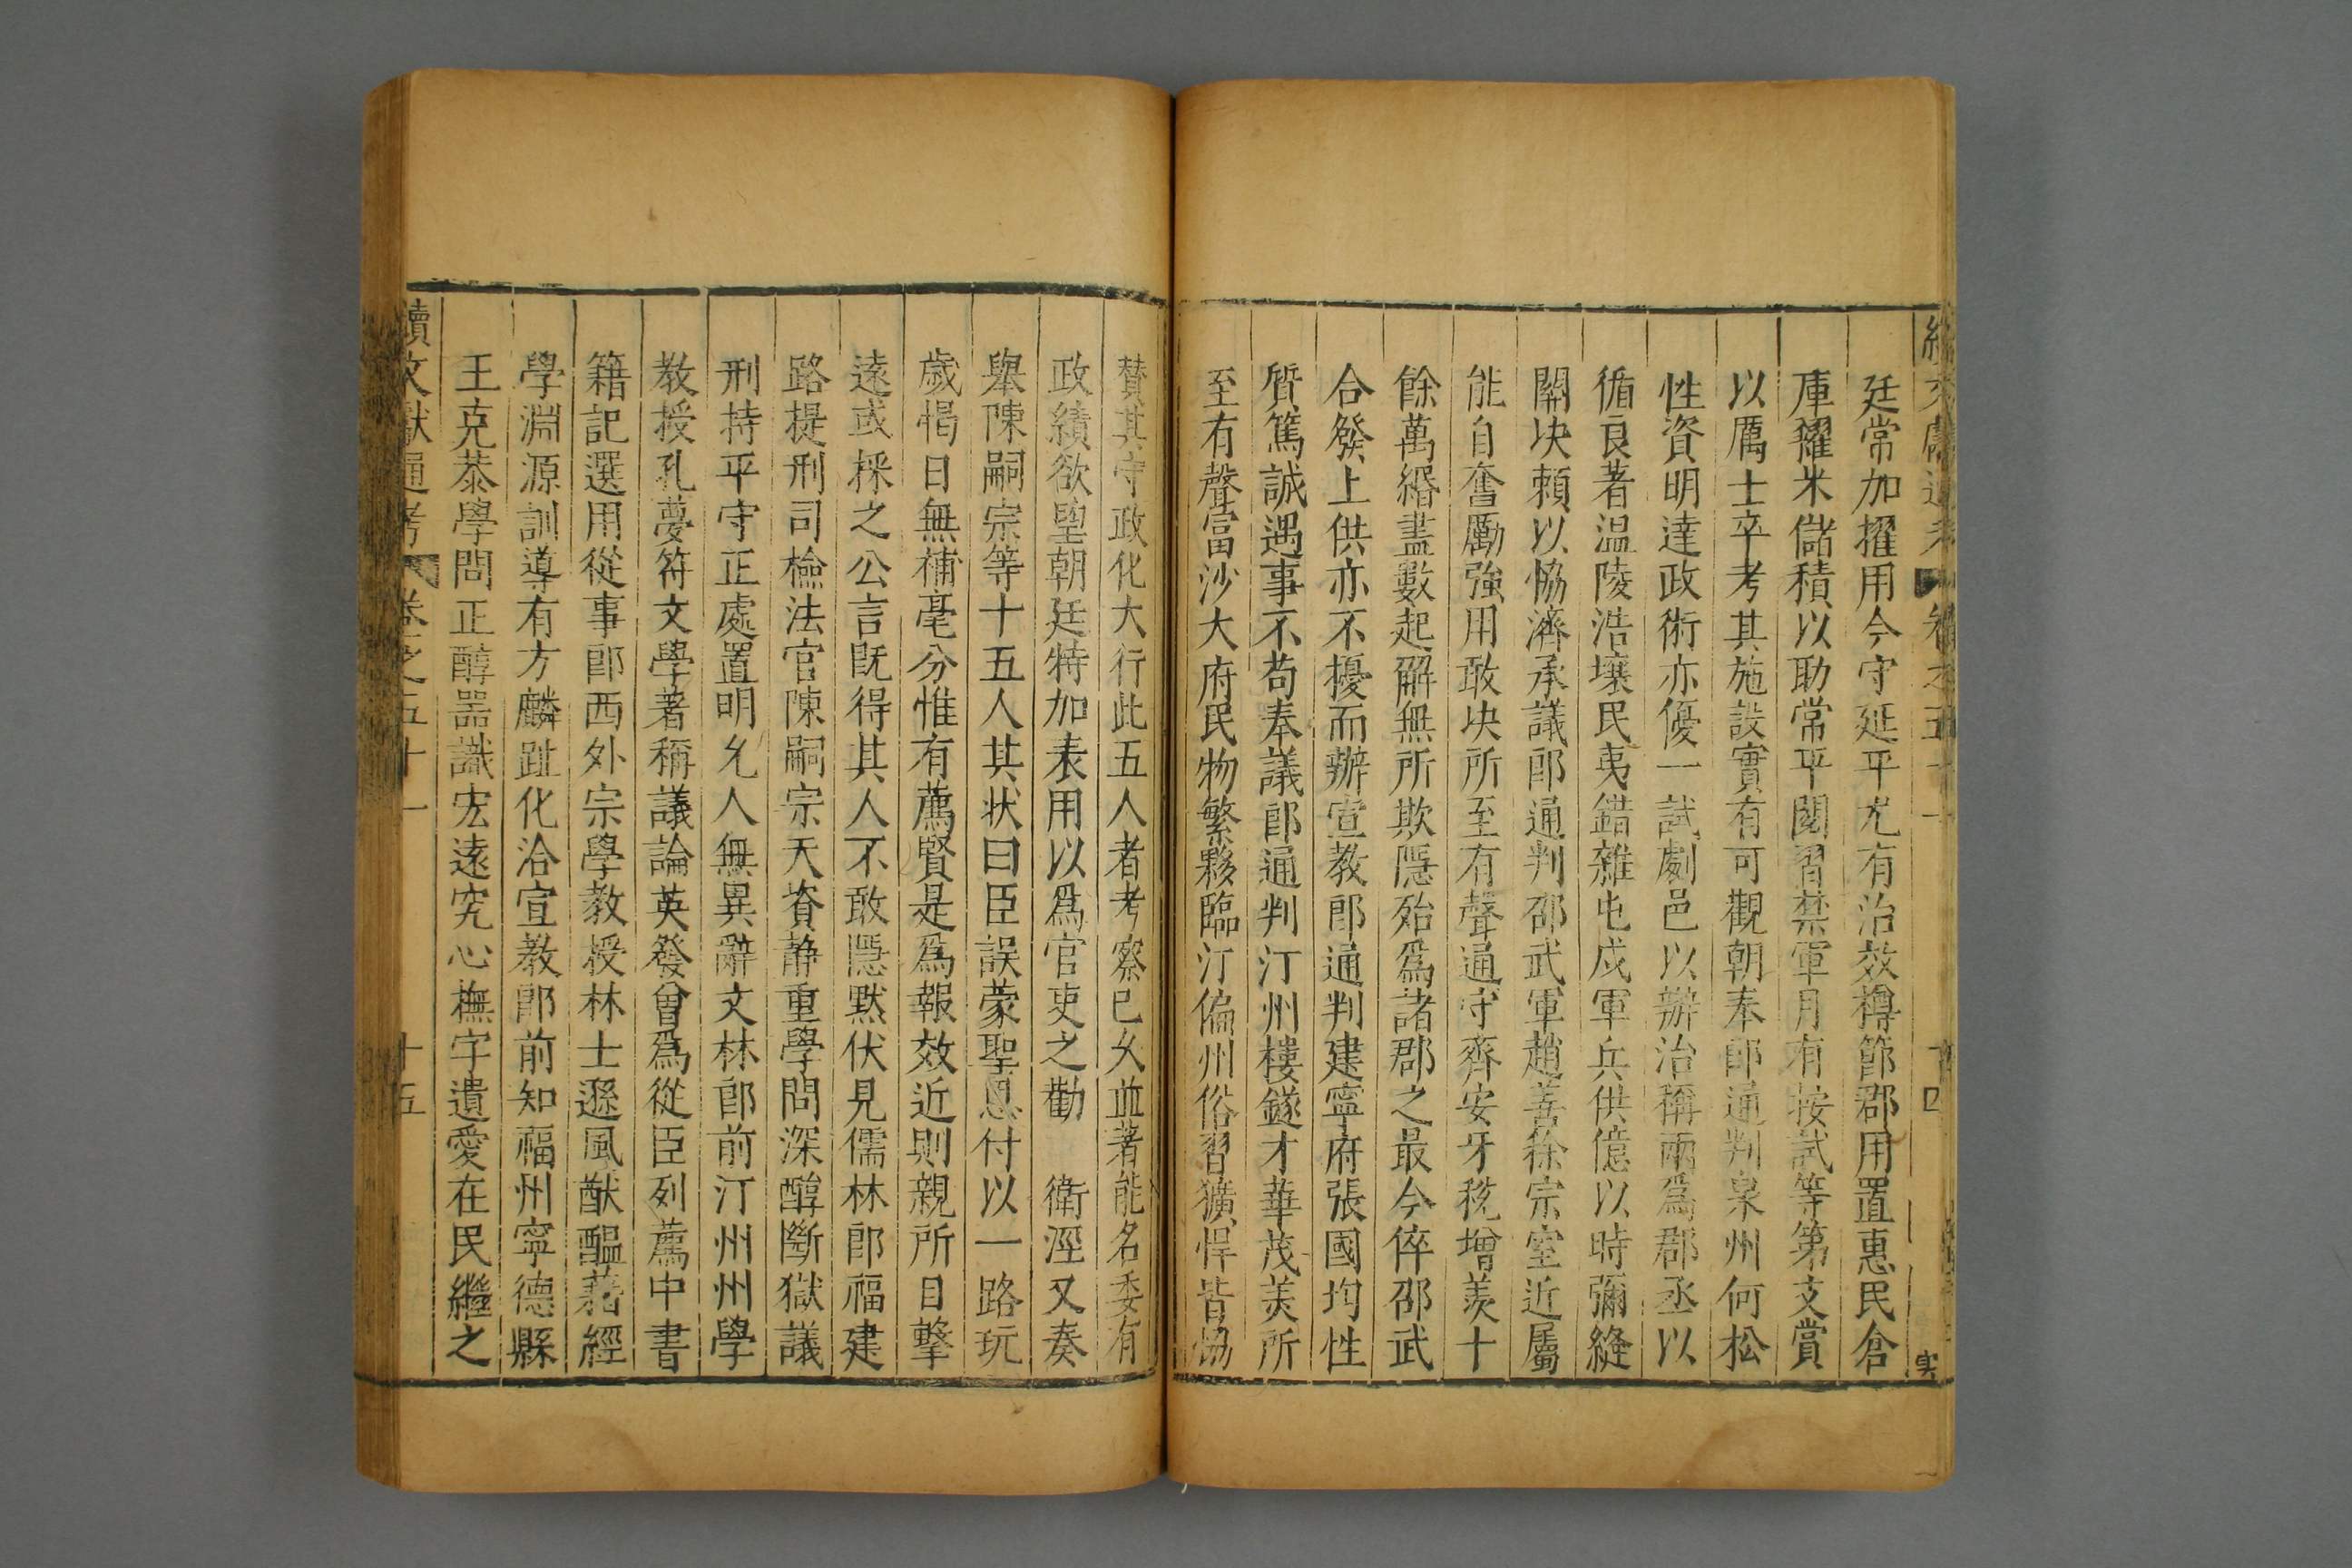 廷常加擢用今守延平尤有治效樽節郡用置惠民倉
庫糴米儲積以助常平閱習禁軍月有按試等第支賞
以厲士卒考其施設實有可觀朝奉郎通判泉州何松
性資明達政術亦優一試劇邑以辦治稱兩爲郡丞以
循良著温陵浩壤民夷錯雜屯戍軍兵供億以時彌縫
關决頼以恊濟承議郎通判邵武軍趙善徐宗室近屬
能自奮勵強用敢决所至有聲通守齊安牙稅增羡十
餘萬緡盡數起解無所欺隱殆爲諸郡之最今倅邵武
合發上供亦不擾而辦宣教郎通判建寧府張國均性
質篤誠遇事不苟奉議郎通判汀州樓鐩才華茂美所
至有聲富沙大府民物繁夥臨汀偏州俗習獷悍皆協
賛其守政化大行此五人者考察已久並著能名委有
政績欲望朝廷特加表用以爲官吏之勸　衛涇又奏
舉陳嗣宗等十五人其狀曰臣誤蒙聖恩付以一路玩
歲愒日無補毫分惟有薦賢是爲報效近則親所目擊
遠或採之公言既得其人不敢隱默伏見儒林郎福建
路提刑司檢法官陳嗣宗天資静重學問深醇斷獄議
刑持平守正處置明允人無異辭文林郎前汀州州學
教授孔夢符文學著稱議論英發曾爲從臣列薦中書
籍記選用從事郎西外宗學教授林士遜風猷醖藉經
學淵源訓導有方麟趾化洽宣教郎前知福州寧德縣
王克恭學問正醇器識宏遠究心撫字遺愛在民繼之
續文獻通考 卷之五十一 十五